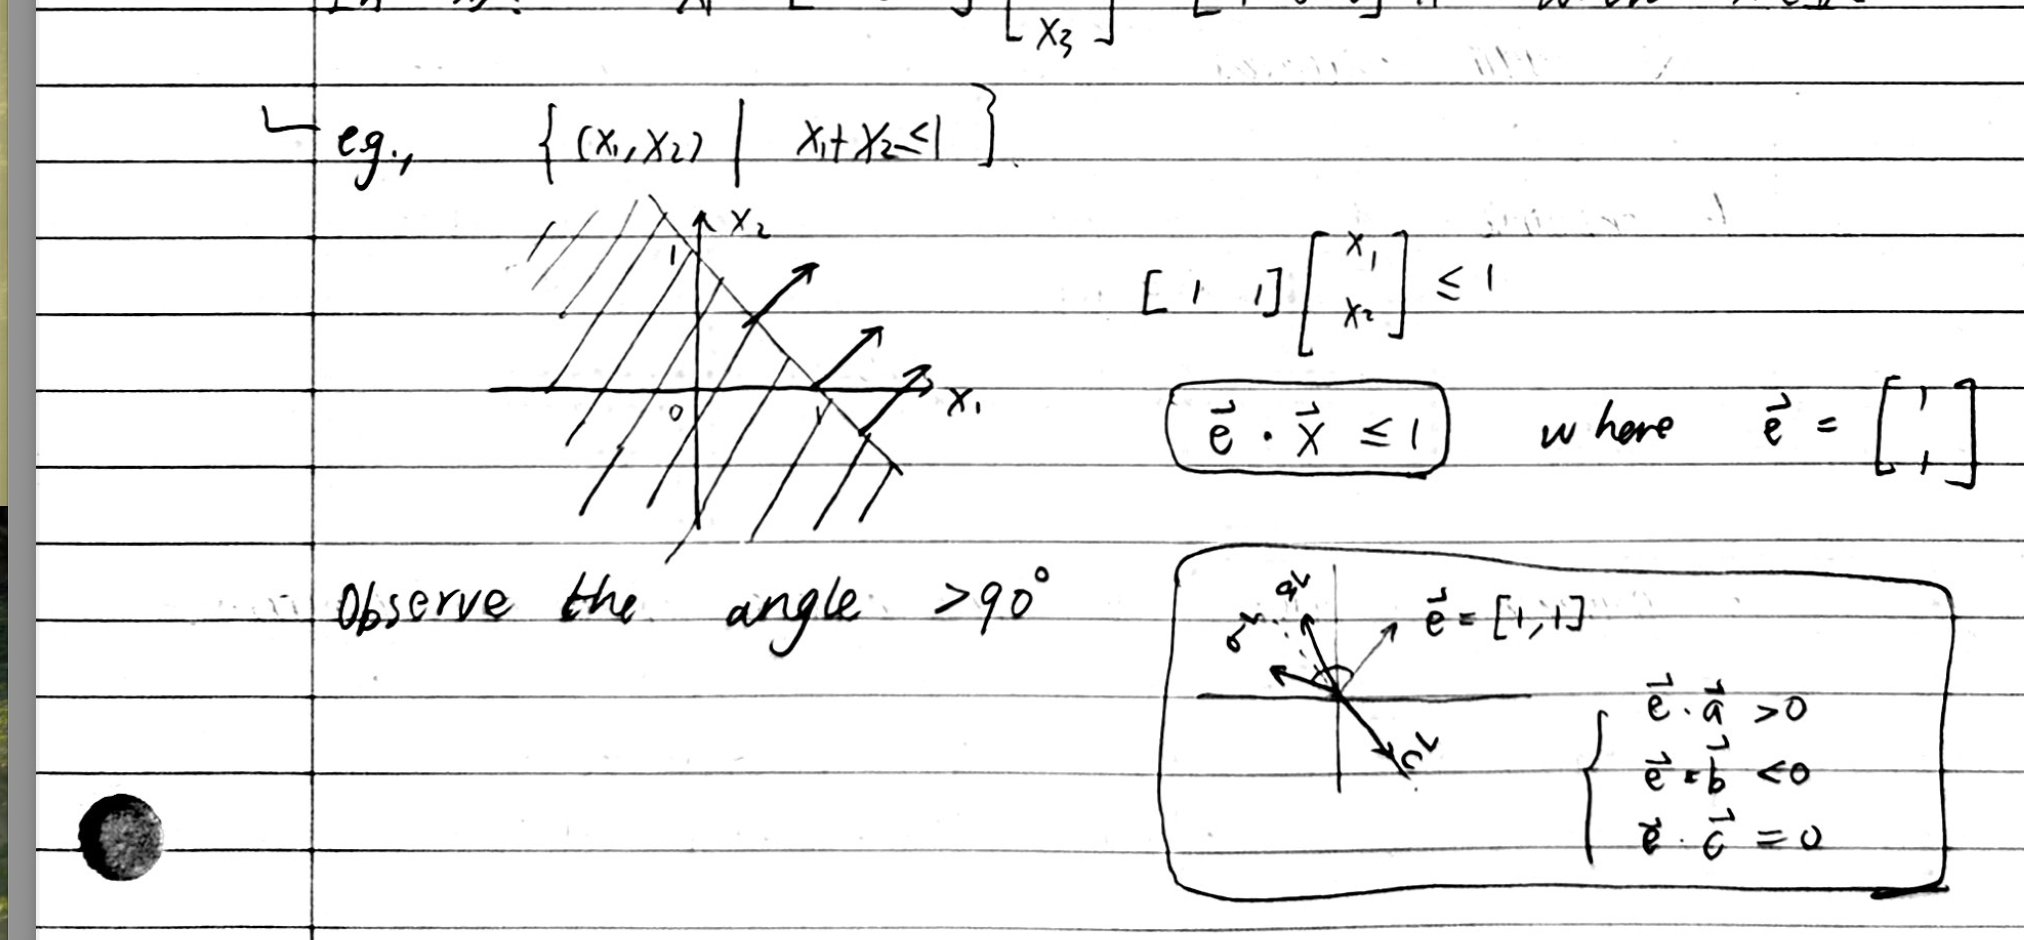 x₃
eg., { (x₁, x₂) | x₁+x₂≤1 }
x₂
1
0 1 x₁
[ 1 1 ] [ x₁ x₂ ] ≤ 1
e⃗ · x⃗ ≤ 1 where e⃗ = [ 1 1 ]
Observe the angle >90°
a⃗
b⃗
e⃗ = [1,1]
c⃗
e⃗ · a⃗ >0
e⃗ · b⃗ <0
e⃗ · c⃗ =0